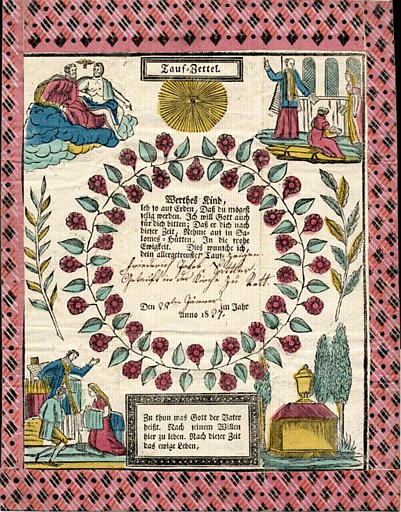 Tauf-Zettel.
Werthes Kind,
leb so auf Erden, Daß du mögest
selig werden. Ich will Gott auch
für dich bitten; Daß er dich nach
dieser Zeit, Nehme auf in Sa-
lomes-Hütten, In die frohe
Ewigkeit. Dies wünsche ich,
dein allergetreuster Tauf-Zeugen
in der Kirche zu
Den 28ten Jänner im Jahr
Anno 18
Zu thun was Gott der Vater
heißt. Nach seinem Willen
hier zu leben. Nach dieser Zeit
das ewige Leben,